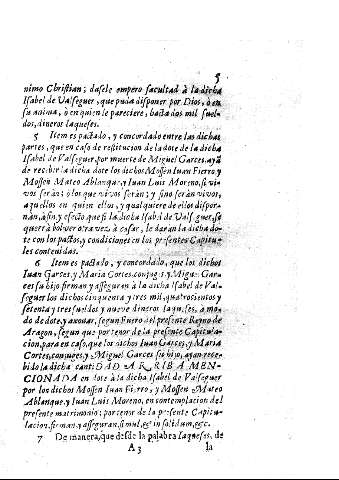 5
nimo Christian; dasele empero facultad à la dicha
Isabel de Valseguer, que pueda disponer por Dios, ò en
su anima, ò en quien le pareciere, hasta dos mil suel-
dos, dineros Iaqueses.
5 Item es pactado, y concordado entre las dichas
partes, que en caso de restitucion de la dote de la dicha
Isabel de Valseguer por muerte de Miguel Garces, aya
de recibir la dicha dote los dichos Mossen Iuan Fierro y
Mossen Mateo Ablanque, y Iuan Luis Moreno, si vi-
vos seràn; ò los que vivos seràn; y sino seràn vivos,
aquellos en quien ellos, y qualquiere de ellos dispor-
nàn, à fin, y efecto que si la dicha Isabel de Valseguer, se
querrà bolver otra vez, à casar, le daràn la dicha do-
te con los pactos, y condiciones en los presentes Capitu-
les contenidas.
6 Item es pactado, y concordado, que los dichos
Iuan Garses, y Maria Cortes, conjuges y Miguel Gar-
ces su hijo firman y asseguran à la dicha Isabel de Val-
seguer los dichos cinquenta y tres mil, quatrosientos y
setenta y tres sueldos y nueve dineros Iaqueses, a mo-
do de dote, y axovar, segun Fuero del presente Reyno de
Aragon, segun que por tenor de la presente Capitula-
cion, para en caso, que los dichos Iuan Garces, y Maria
Cortes, conjuges, y Miguel Garces su hijo, ayan rece-
bido la dicha cantiDAD ARRIBA MEN-
CIONADA en dote à la dicha Isabel de Valseguer
por los dichos Mossen Iuan Fierro, y Mossen Mateo
Ablanque, y Iuan Luis Moreno, en contemplacion del
presente matrimonio; por tenor de la presente Capitu-
lacion, firman, y asseguran, simul, et in solidum, etc.
7 De manera, que desde la palabra Iaqueses, de
A 3 la